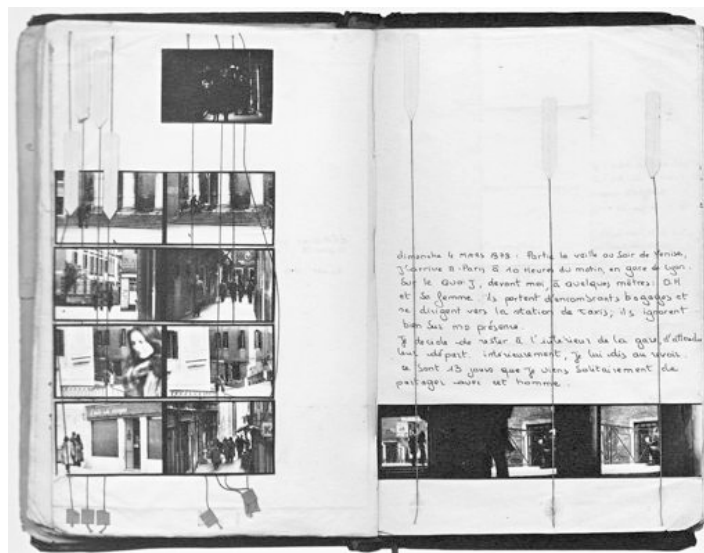 dimanche 4 Mars 1979 : Partie la veille au Soir de Venise,
J'arrive à Paris à 10 Heures du matin, en gare de Lyon.
Sur le Quai J, devant moi, à quelques mètres : O.H
et Sa femme. ils portent d'encombrants bagages et
se dirigent vers la station de Taxis ; ils ignorent
bien Sur ma présence.
Je décide de rester à l'intérieur de la gare, d'attendre
leur départ. intérieurement, je lui dis au revoir.
ce Sont 13 jours que je viens Solitairement de
partager avec cet homme.